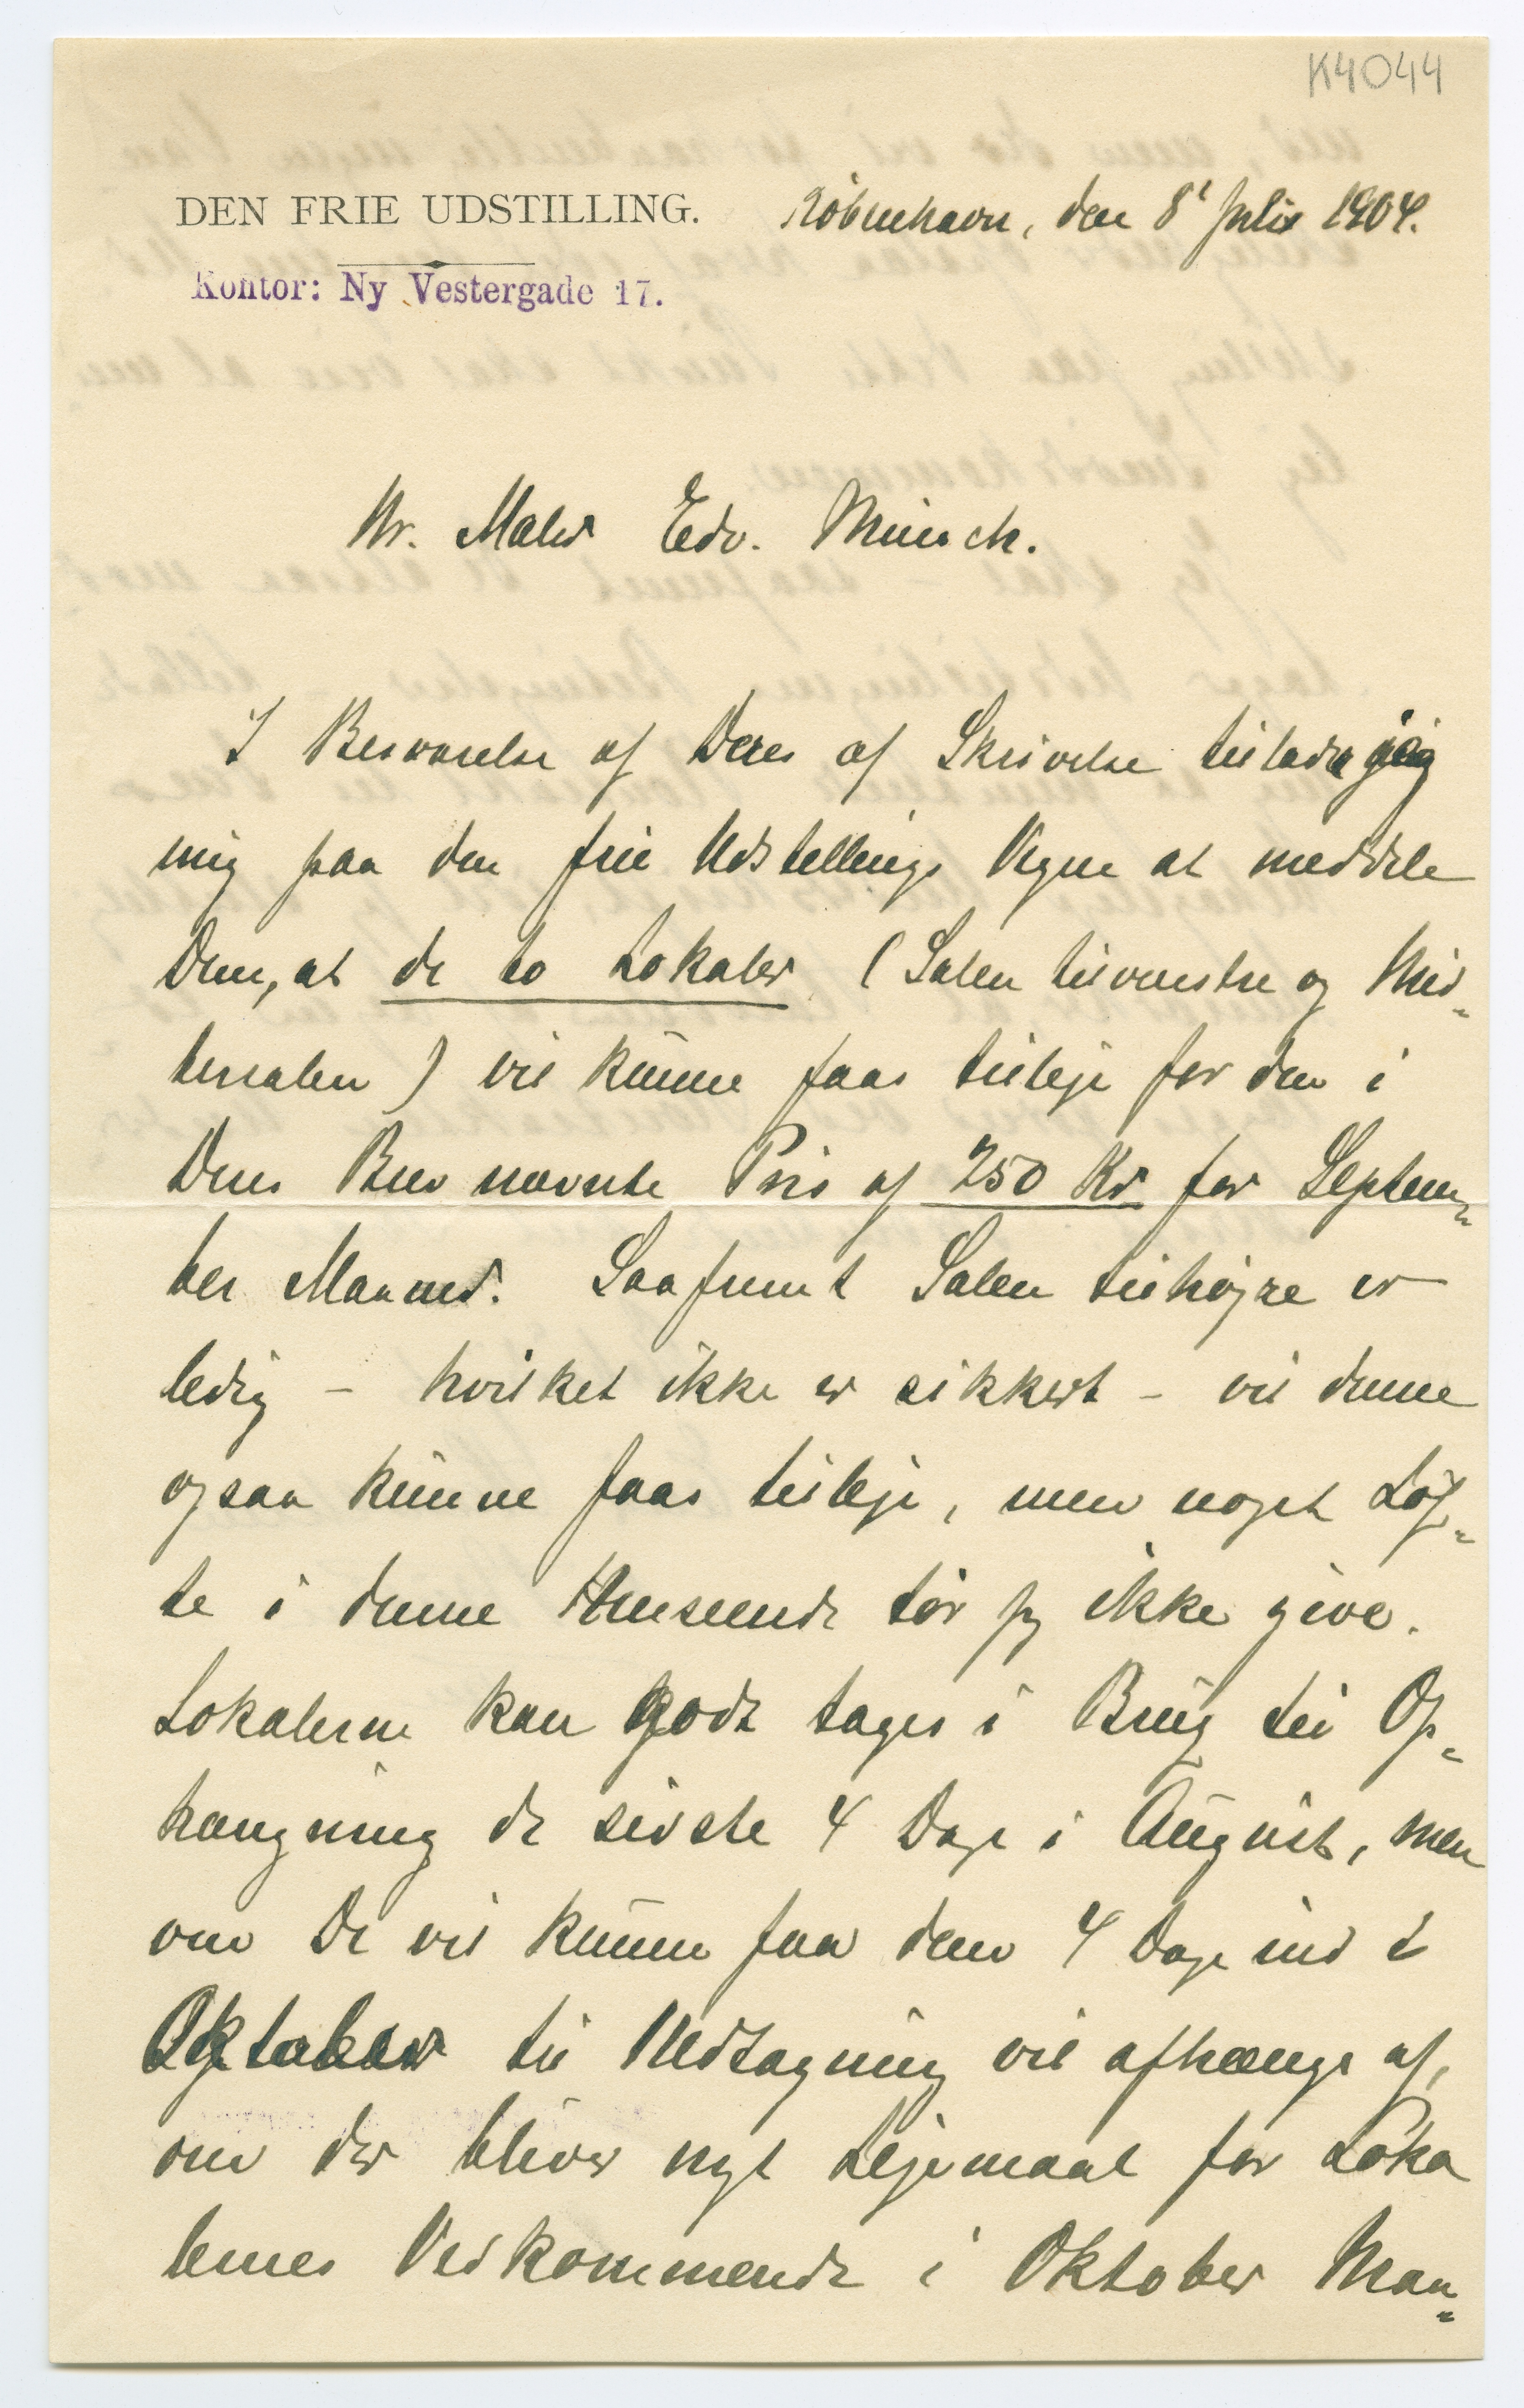 K4044
DEN FRIE UDSTILLING. København, den 8' Juli 1904.
Kontor: Ny Vestergade 17.
Hr. Maler Edv. Münch.
I Besvarelse af Deres af Skrivelse tillader jeg
mig paa den frie Udstillings Vegne at meddele
Dem, at de to Lokaler (Salen tilvenstre og Mid-
tersalen) vil kunne faas tilleje for den i
Deres Brev nævnte Pris af 250 Kr for Septem-
ber Maaned. Saafremt Salen tilhøjre er
ledig - hvilket ikke er sikkert - vil denne
ogsaa kunne faas tilleje, men noget Løf-
te i denne Henseende tør jeg ikke give.
Lokalerne kan godt tages i Brug til Op-
hængning de sidste 4 Dage i August, men
om De vil kunne faa dem 4 Dage ind i
Oktober til Nedtagning vil afhænge af,
om der bliver nyt Lejemaal for Loka
lernes Vedkommende i Oktober Maa-